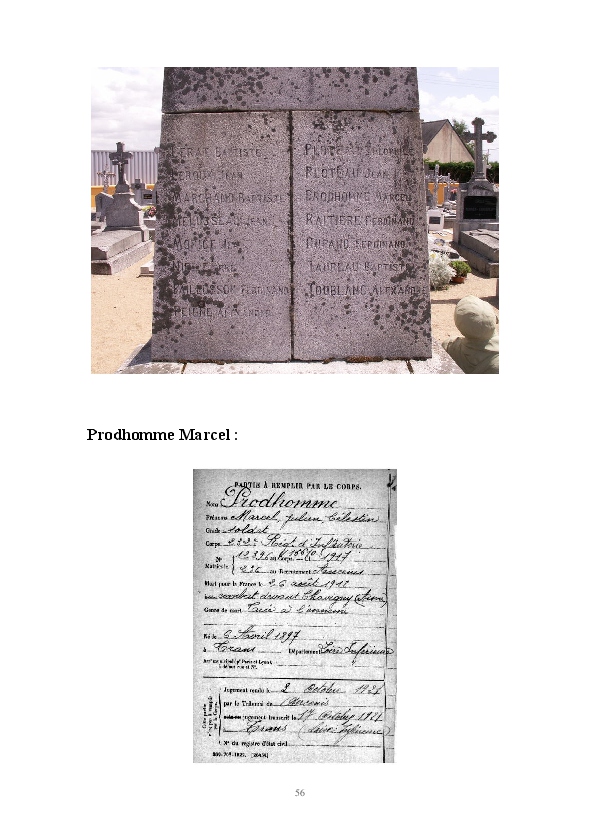 BAPTISTE
JEAN
MARCHAND BAPTISTE
JEAN
MORICE
FERDINAND
PEIGNÉ ALEXANDRE
PLOTEAU JEAN
PRODHOMME MARCEL
RAITIÈRE FERDINAND
DURAND FERDINAND
TAUREAU BAPTISTE
TOUBLANC ALEXANDRE
Prodhomme Marcel :
PARTIE À REMPLIR PAR LE CORPS.
Nom Prodhomme
Prénoms Marcel, Julien Célestin
Grade soldat
Corps 232e Régt d'Infanterie
N° 12.396 au Corps. — Cl. 1917
Matricule 226 au Recrutement Ancenis
Mort pour la France le 26 août 1918
combat devant Chavigny (Aisne)
Genre de mort Tué à l'ennemi
Né le 6 Avril 1897
à Trans Département Loire Inférieure
Arrᵗ municipal (pʳ Paris et Lyon),
à défaut rue et N°.
Cette partie
n'est pas à remplir
par le Corps.
Jugement rendu le 2 Octobre 1921
par le Tribunal de Ancenis
jugement transcrit le 17 Octobre 1921
Trans (Loire Inférieure)
N° du registre d'état civil
56